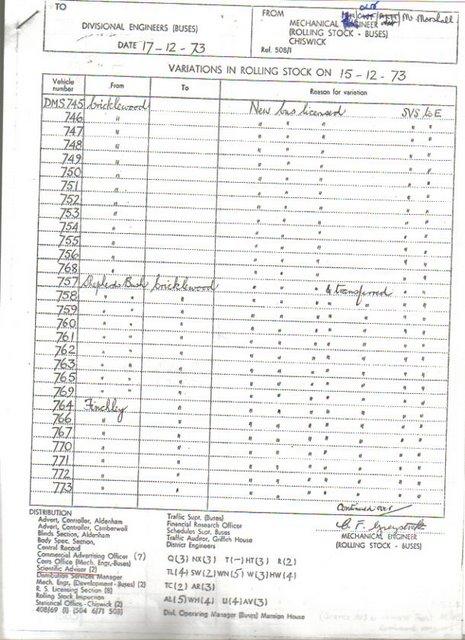 TO
DIVISIONAL ENGINEERS (BUSES)
DATE 17-12-73
FROM
Mr Marshall
MECHANICAL ENGINEER
(ROLLING STOCK - BUSES)
CHISWICK
Ref. 508/1
VARIATIONS IN ROLLING STOCK ON 15-12-73
Vehicle number From To Reason for variation
DMS.745 Cricklewood New bus licensed SVS to E
746 " " " " " "
747 " " " " " "
748 " " " " " "
749 " " " " " "
750 " " " " " "
751 " " " " " "
752 " " " " " "
753 " " " " " "
754 " " " " " "
755 " " " " " "
756 " " " " " "
768 " " " " " "
757 Shepherds Bush Cricklewood " " " & transferred " "
758 " " " " " " " " " "
759 " " " " " " " " " "
760 " " " " " " " " " "
761 " " " " " " " " " "
762 " " " " " " " " " "
763 " " " " " " " " " "
765 " " " " " " " " " "
769 " " " " " " " " " "
764 Finchley " " " " " " " "
766 " " " " " " " " "
767 " " " " " " " " "
770 " " " " " " " " "
771 " " " " " " " " "
772 " " " " " " " " "
773 " " " " " " " " "
Continued over
DISTRIBUTION
Advert. Controller, Aldenham
Advert. Controller, Camberwell
Blinds Section, Aldenham
Body Spec. Section,
Central Record
Commercial Advertising Officer (7)
Cars Office (Mech. Engr. Buses)
Scientific Adviser (2)
Distribution Services Manager
Mech. Engr. (Development - Buses) (2)
R. S. Licensing Section (8)
Rolling Stock Inspection
Statistical Office - Chiswick (2)
408/69 (I) (504 6/71 50S)
Traffic Supt. (Buses)
Financial Research Officer
Schedules Supt. Buses
Traffic Auditor, Griffith House
District Engineers
Q(3) NX(3) T(-) HT(3) R(2)
TL(4) SW(2) WN(5) W(3) HW(4)
TC(2) AR(3)
AL(5) WH(4) U(4) AV(3)
Divl. Operating Manager (Buses) Mansion House
MECHANICAL ENGINEER
(ROLLING STOCK - BUSES)